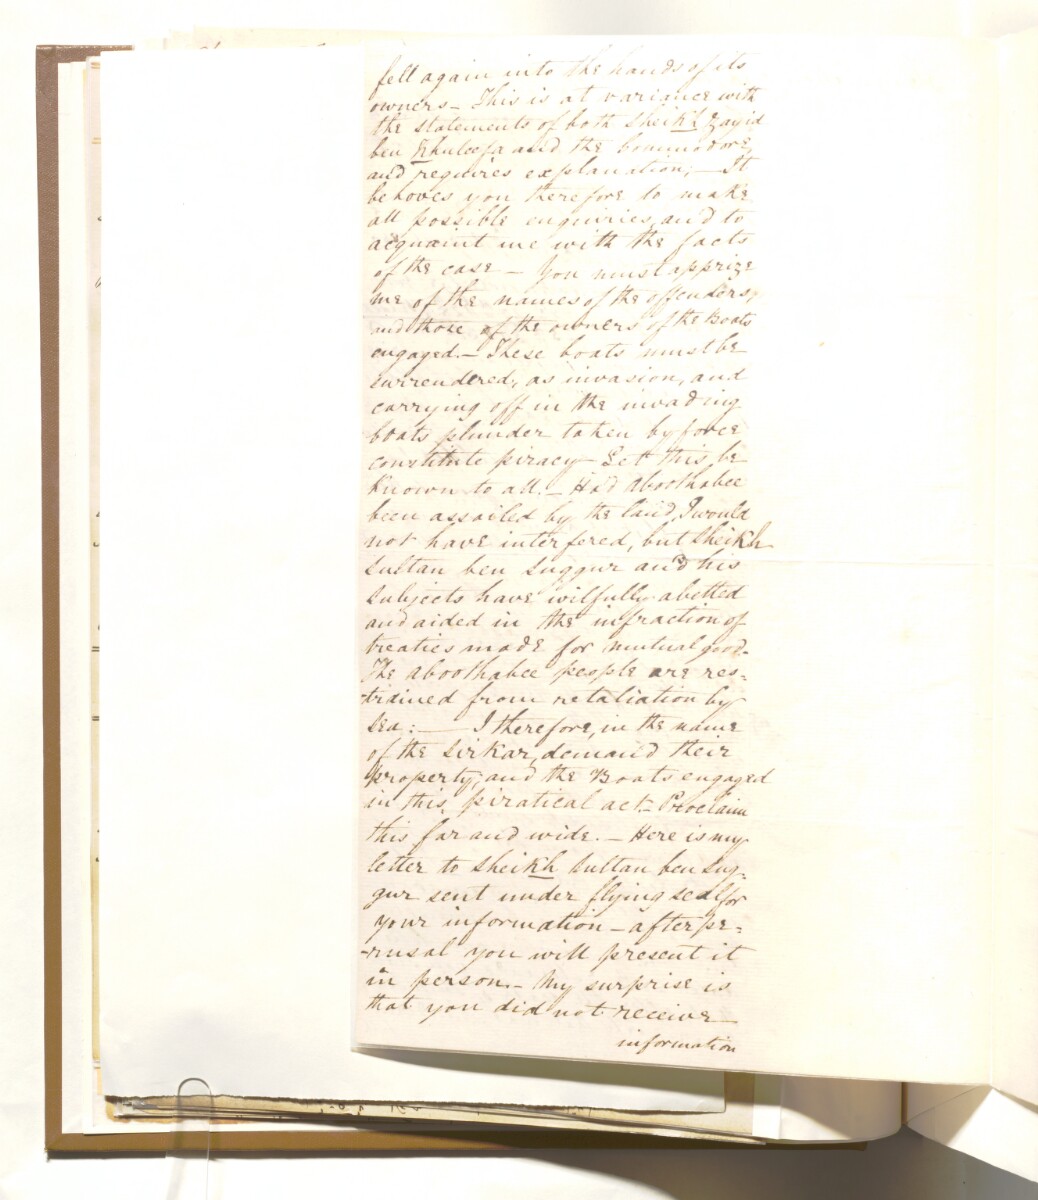 fell again into the hands of its
owners – This is at variance with
the statements of both Sheikh Zayid
ben Khuleefa and the Commodore,
and requires explanation; – It
behoves you therefore to make
all possible enquiries, and to
acquaint me with the facts
of the case – You must apprize
me of the names of the offenders,
and those of the owners of the Boats
engaged. – These boats must be
surrendered, as invasion, and
carrying off in the invading
boats plunder taken by force
constitute piracy – Let this be
known to all. – Had Aboothabee
been assailed by the land, I would
not have interfered, but Sheikh
Sultan ben Suggur and his
subjects have wilfully abetted
and aided in the infraction of
treaties made for mutual good.
The Aboothabee people are res-
-trained from retaliation by
sea: – I therefore, in the name
of the Sirkar, demand their
property, and the Boats engaged
in this piratical act – Proclaim
this far and wide. – Here is my
letter to Sheikh Sultan ben Sug-
gur sent under flying seal for
your information – after pe-
-rusal you will present it
in person – My surprise is
that you did not receive
information